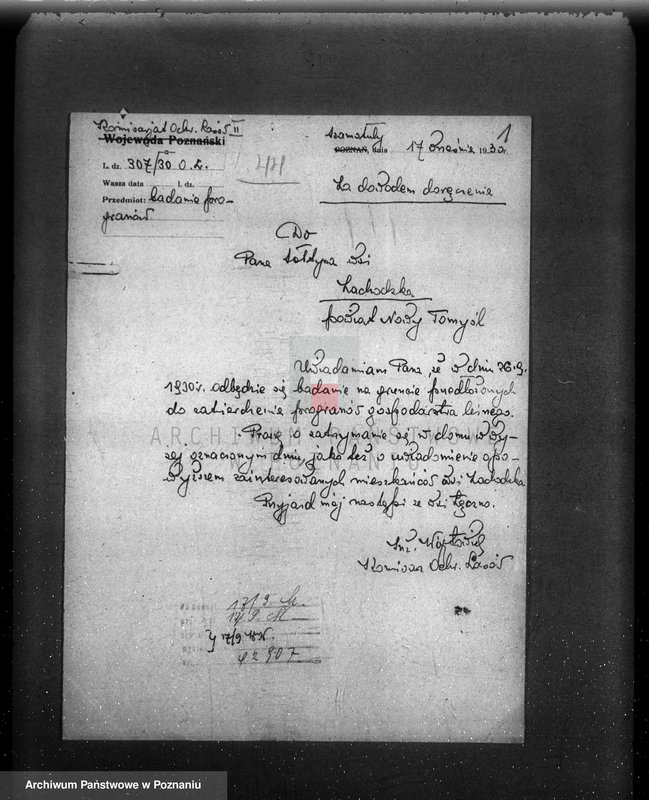 Komisarjat Ochr. Lasów II
Wojewoda Poznański
L. dz. 307/30 O.L.
Wasza data l. dz.
Przedmiot: badanie pro-
gramów
44
1
Szamotuły
POZNAŃ, dnia 17 września 1930 r.
Za dowodem doręczenia
Do
Pana Sołtysa wsi
Zachodzko
powiat Nowy Tomyśl
Uwiadamiam Pana, że w dniu 26.9.
1930 r. odbędzie się badanie na gruncie przedłożonych
do zatwierdzenia programów gospodarstwa leśnego.
Proszę o zatrzymanie się w domu w wy-
żej oznaczonym dniu, jako też o uwiadomienie o po-
wyższem zainteresowanych mieszkańców wsi Zachodzko
Przyjazd mój nastąpi ze wsi Łęczno.
Inż. Wójtowicz
Komisarz Ochr. Lasów
17/9 M.
17/9. M
17/9
42907
ARCHIWUM PAŃSTWOWE
W POZNANIU
Archiwum Państwowe w Poznaniu